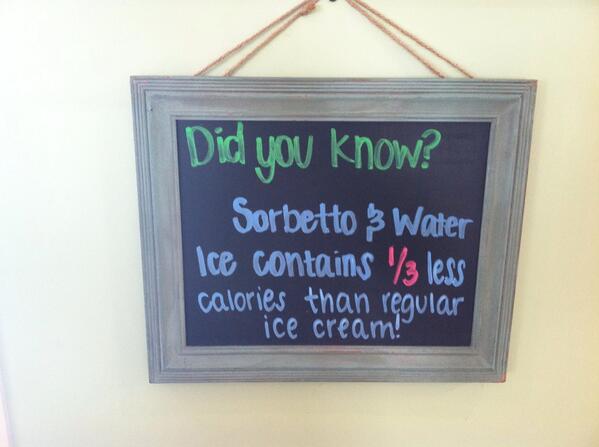 Did you know?
Sorbetto & Water
Ice contains 1/3 less
calories than regular
ice cream!